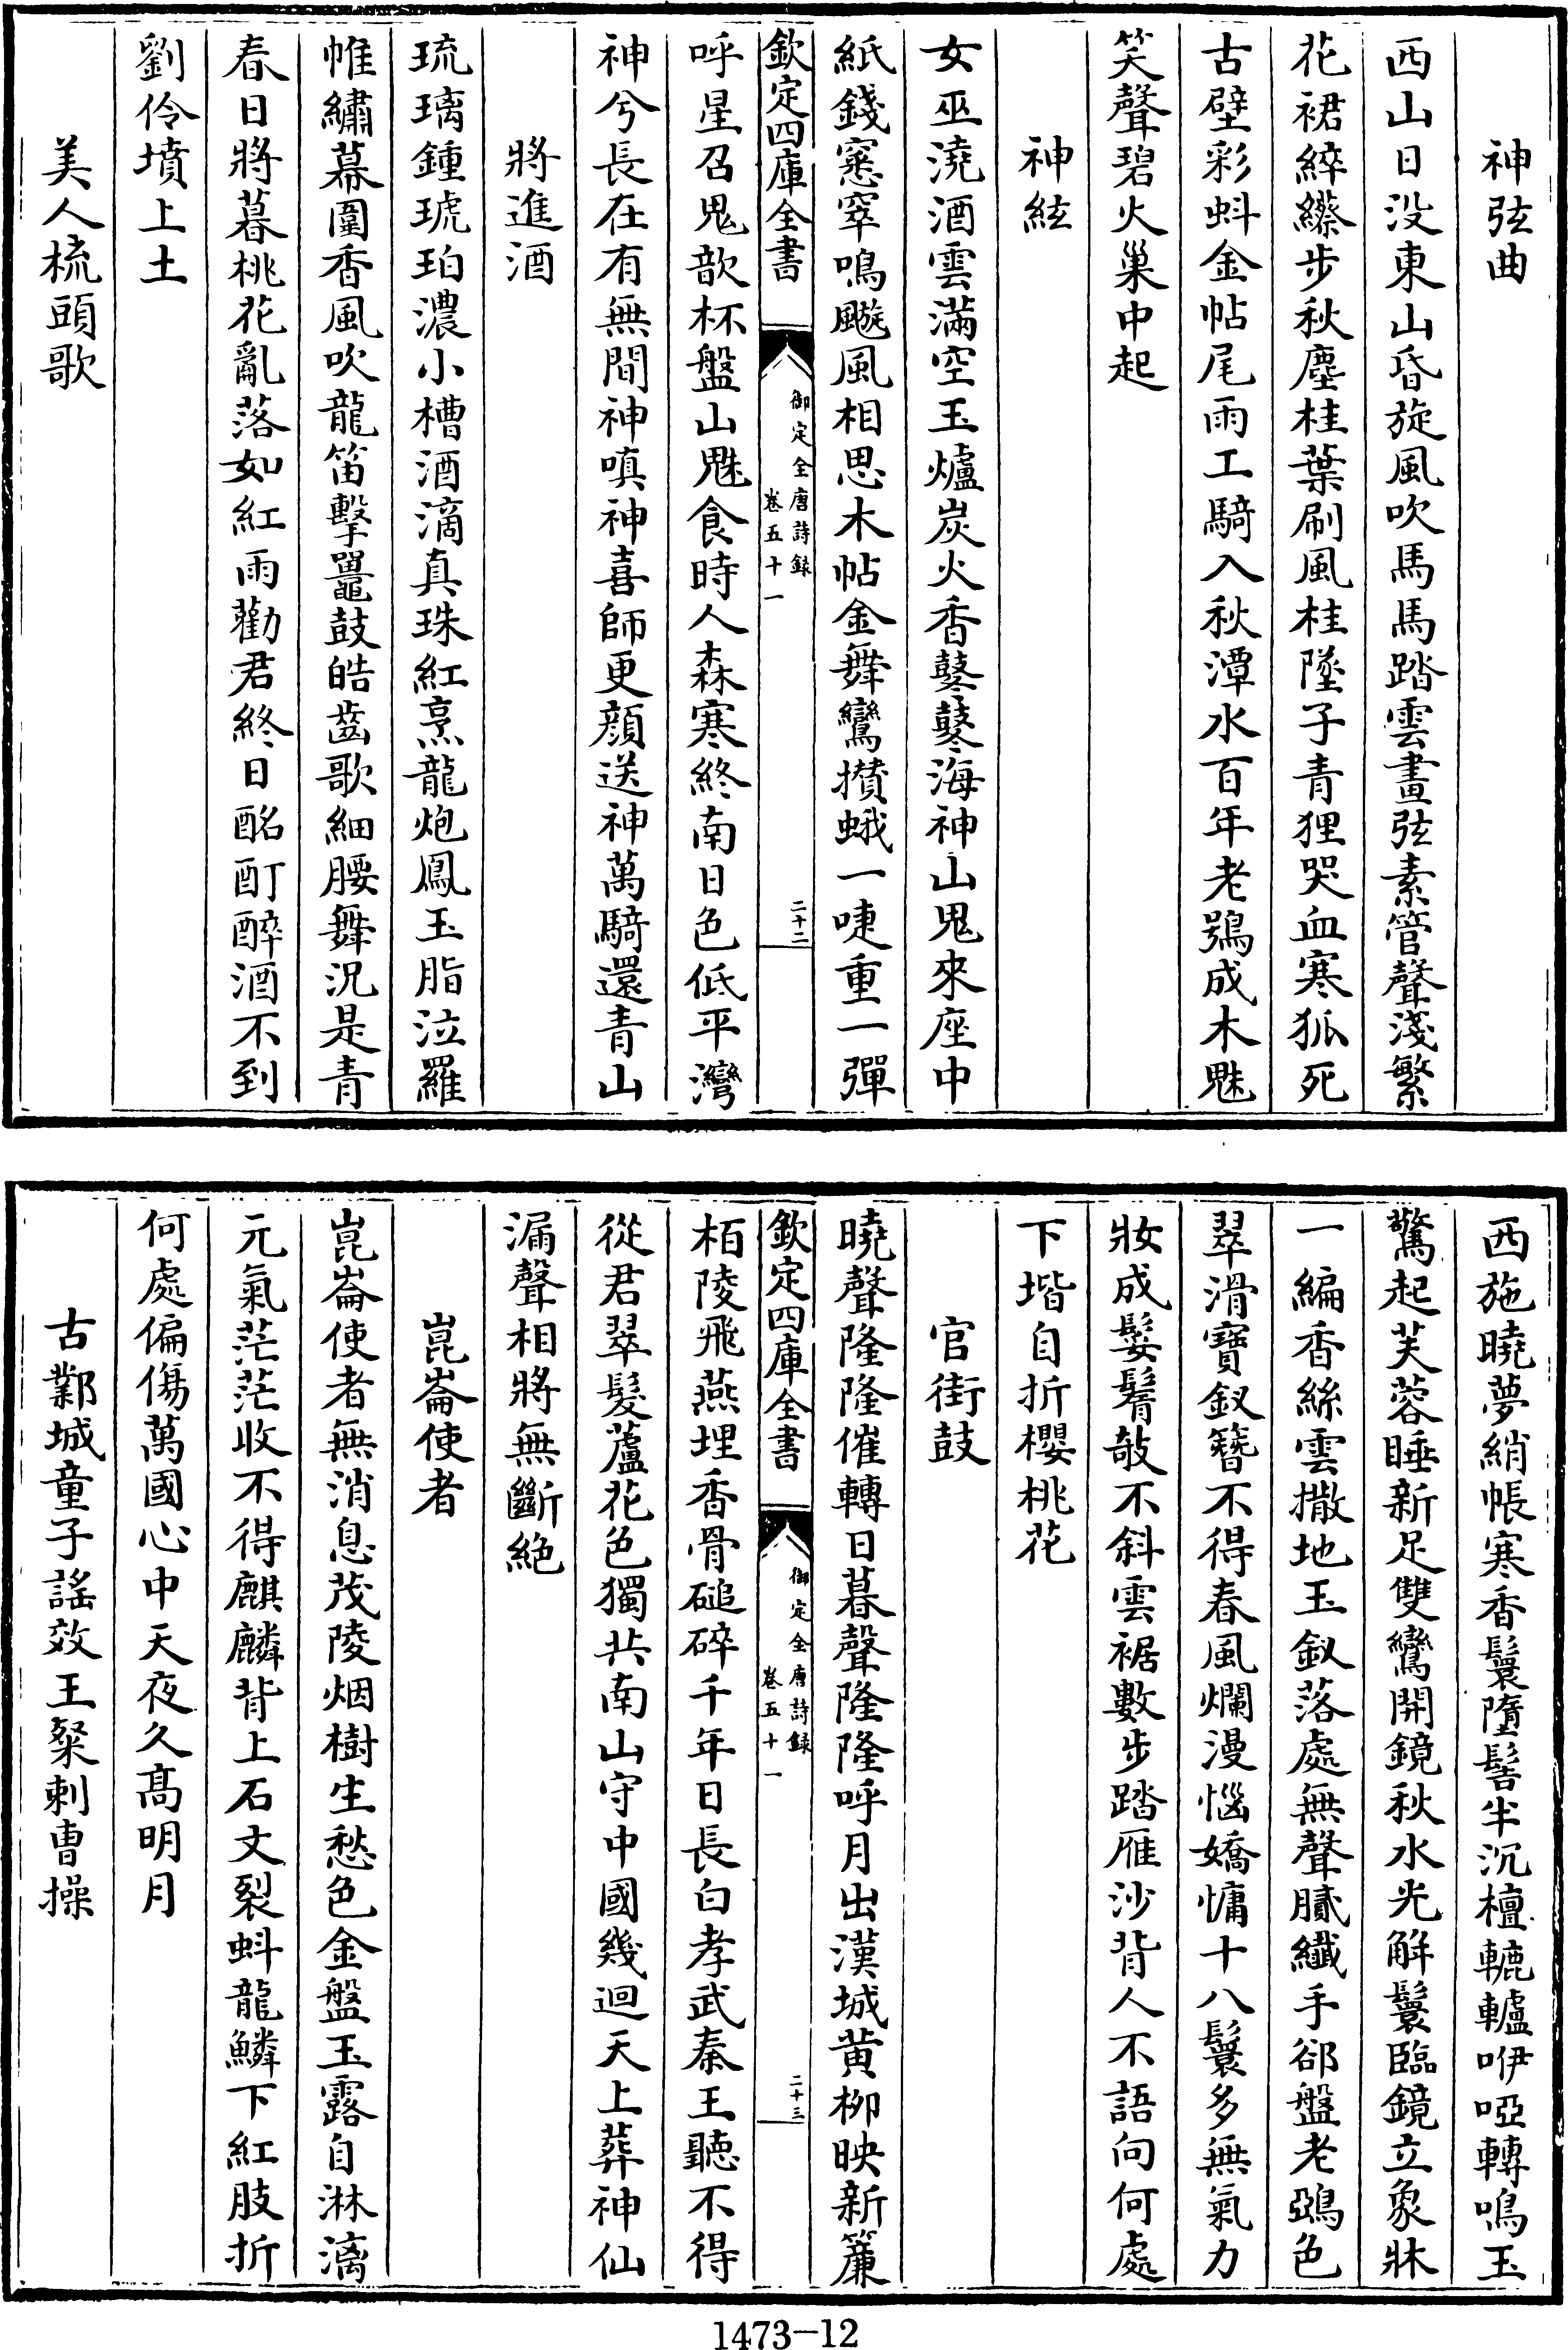 神弦曲
西山日没東山昏旋風吹馬馬踏雲畫弦素管聲淺繁
花裙綷縩步秋塵桂葉刷風桂墜子青狸哭血寒狐死
古壁彩蚪金帖尾雨工騎入秋潭水百年老鴞成木魅
笑聲碧火巢中起
神絃
女巫澆酒雲滿空玉爐炭火香鼕鼕海神山鬼來座中
紙錢窸窣鳴䬙風相思木帖金舞鸞攅蛾一啑重一彈
欽定四庫全書
御定全唐詩録
卷五十一
二十二
呼星召鬼歆杯盤山魅食時人森寒終南日色低平灣
神兮長在有無間神嗔神喜師更顔送神萬騎還青山
將進酒
琉璃鍾琥珀濃小槽酒滴真珠紅烹龍炮鳳玉脂泣羅
帷繡幕圍香風吹龍笛擊鼉鼓皓齒歌細腰舞況是青
春日將暮桃花亂落如紅雨勸君終日酩酊醉酒不到
劉伶墳上土
美人梳頭歌
西施曉夢綃帳寒香鬟墮髻半沉檀轆轤咿啞轉鳴玉
驚起芙蓉睡新足雙鸞開鏡秋水光解鬟臨鏡立象牀
一編香絲雲撒地玉釵落處無聲膩纖手郤盤老鴉色
翠滑寶釵簪不得春風爛漫惱嬌慵十八鬟多無氣力
妝成鬌鬌敧不斜雲裾數步踏雁沙背人不語向何處
下堦自折櫻桃花
官街鼓
曉聲隆隆催轉日暮聲隆隆呼月出漢城黄柳映新簾
欽定四庫全書
御定全唐詩録
卷五十一
二十三
栢陵飛燕埋香骨磓碎千年日長白孝武秦王聽不得
從君翠髮蘆花色獨共南山守中國幾迴天上葬神仙
漏聲相將無斷絶
崑崙使者
崑崙使者無消息茂陵烟樹生愁色金盤玉露自淋漓
元氣茫茫收不得麒麟背上石文裂蚪龍鱗下紅肢折
何處偏傷萬國心中天夜久髙明月
古鄴城童子謡效王粲刺曹操
1473-12